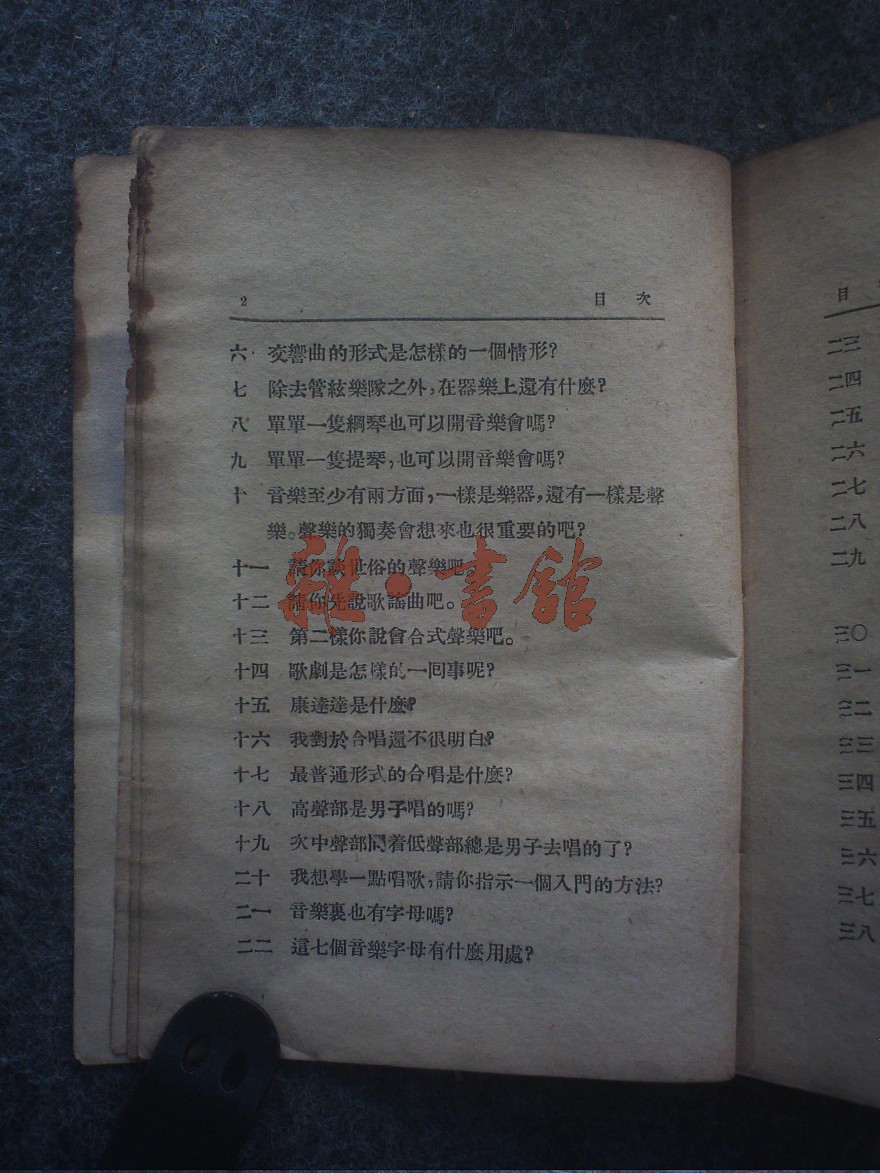 2 目次
六 交響曲的形式是怎樣的一個情形?
七 除去管絃樂隊之外,在器樂上還有什麼?
八 單單一隻鋼琴也可以開音樂會嗎?
九 單單一隻提琴,也可以開音樂會嗎?
十 音樂至少有兩方面,一樣是樂器,還有一樣是聲
樂。聲樂的獨奏會想來也很重要的吧?
十一 請你談世俗的聲樂吧。
十二 請你先說歌謠曲吧。
十三 第二樣你說會合式聲樂吧。
十四 歌劇是怎樣的一回事呢?
十五 康達達是什麼?
十六 我對於合唱還不很明白?
十七 最普通形式的合唱是什麼?
十八 高聲部是男子唱的嗎?
十九 次中聲部同着低聲部總是男子去唱的了?
二十 我想學一點唱歌,請你指示一個入門的方法?
二一 音樂裏也有字母嗎?
二二 這七個音樂字母有什麼用處?
雜·書館
目
二三
二四
二五
二六
二七
二八
二九
三〇
三一
三二
三三
三四
三五
三六
三七
三八